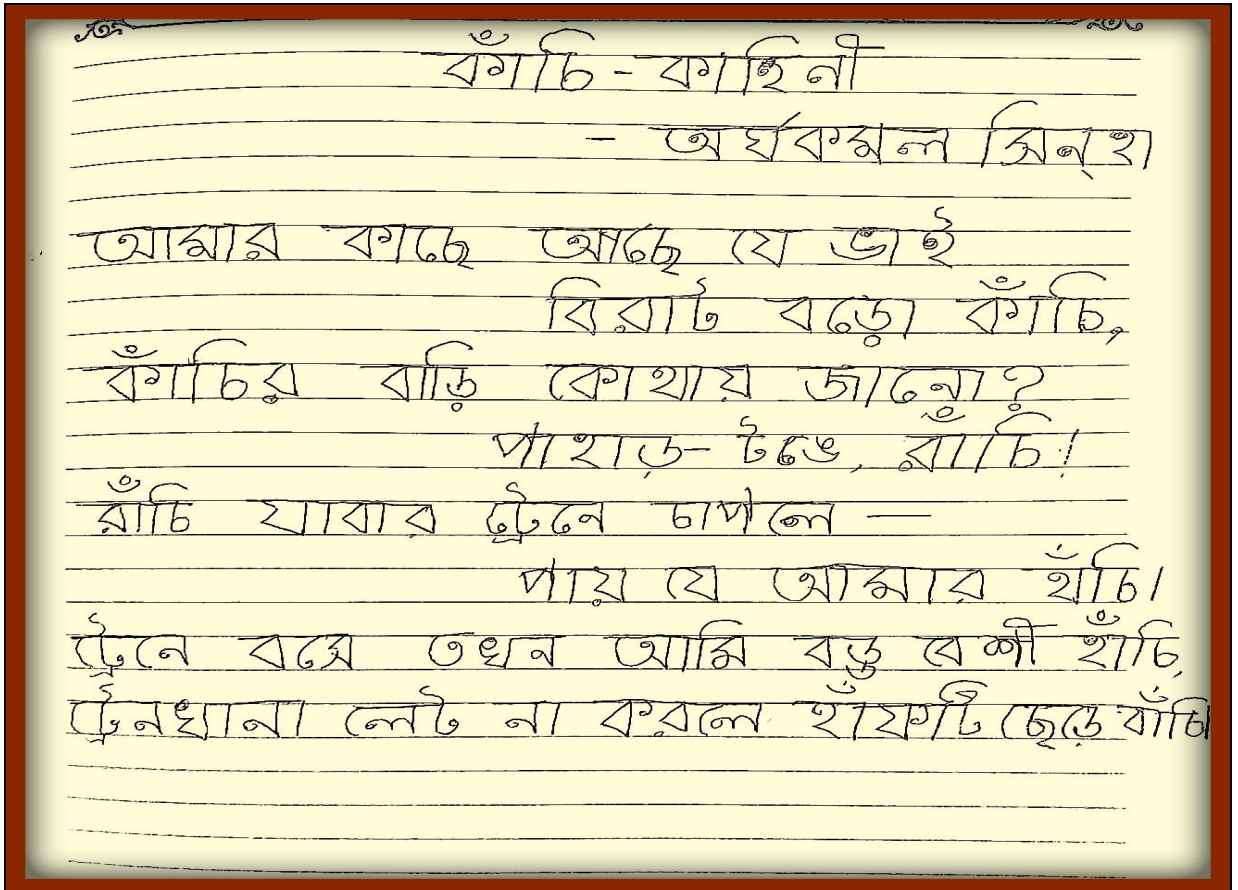 কাঁচি - কাহিনী
- অর্ঘকমল সিন্‌হা
আমার কাছে আছে যে ভাই
বিরাট বড়ো কাঁচি,
কাঁচির বাড়ি কোথায় জানো?
পাহাড়-টঙে, রাঁচি!
রাঁচি যাবার ট্রেনে চাপলে —
পায় যে আমার হাঁচি।
ট্রেনে বসে তখন আমি বড্ড বেশী হাঁচি,
ট্রেনখানা লেট না করলে হাঁফটি ছেড়ে বাঁচি।